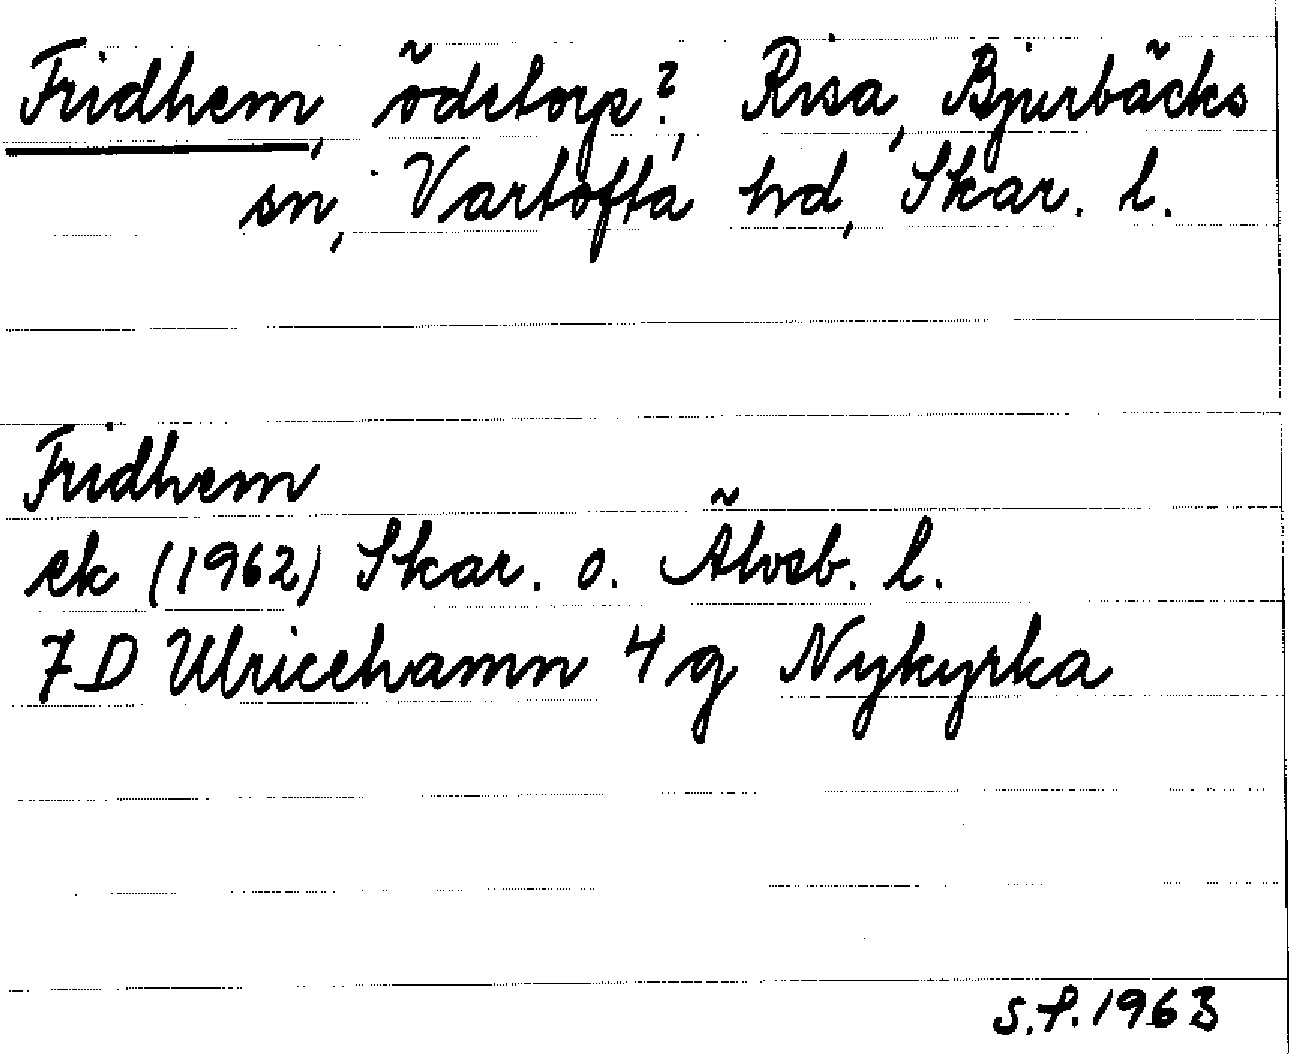 Fridhem, ödetorp?, Risa, Bjurbäcks
sn, Vartofta hd, Skar. l.
Fridhem
ek (1962) Skar. o. Älvsb. l.
7D Ulricehamn 4g Nykyrka
S.F. 1963